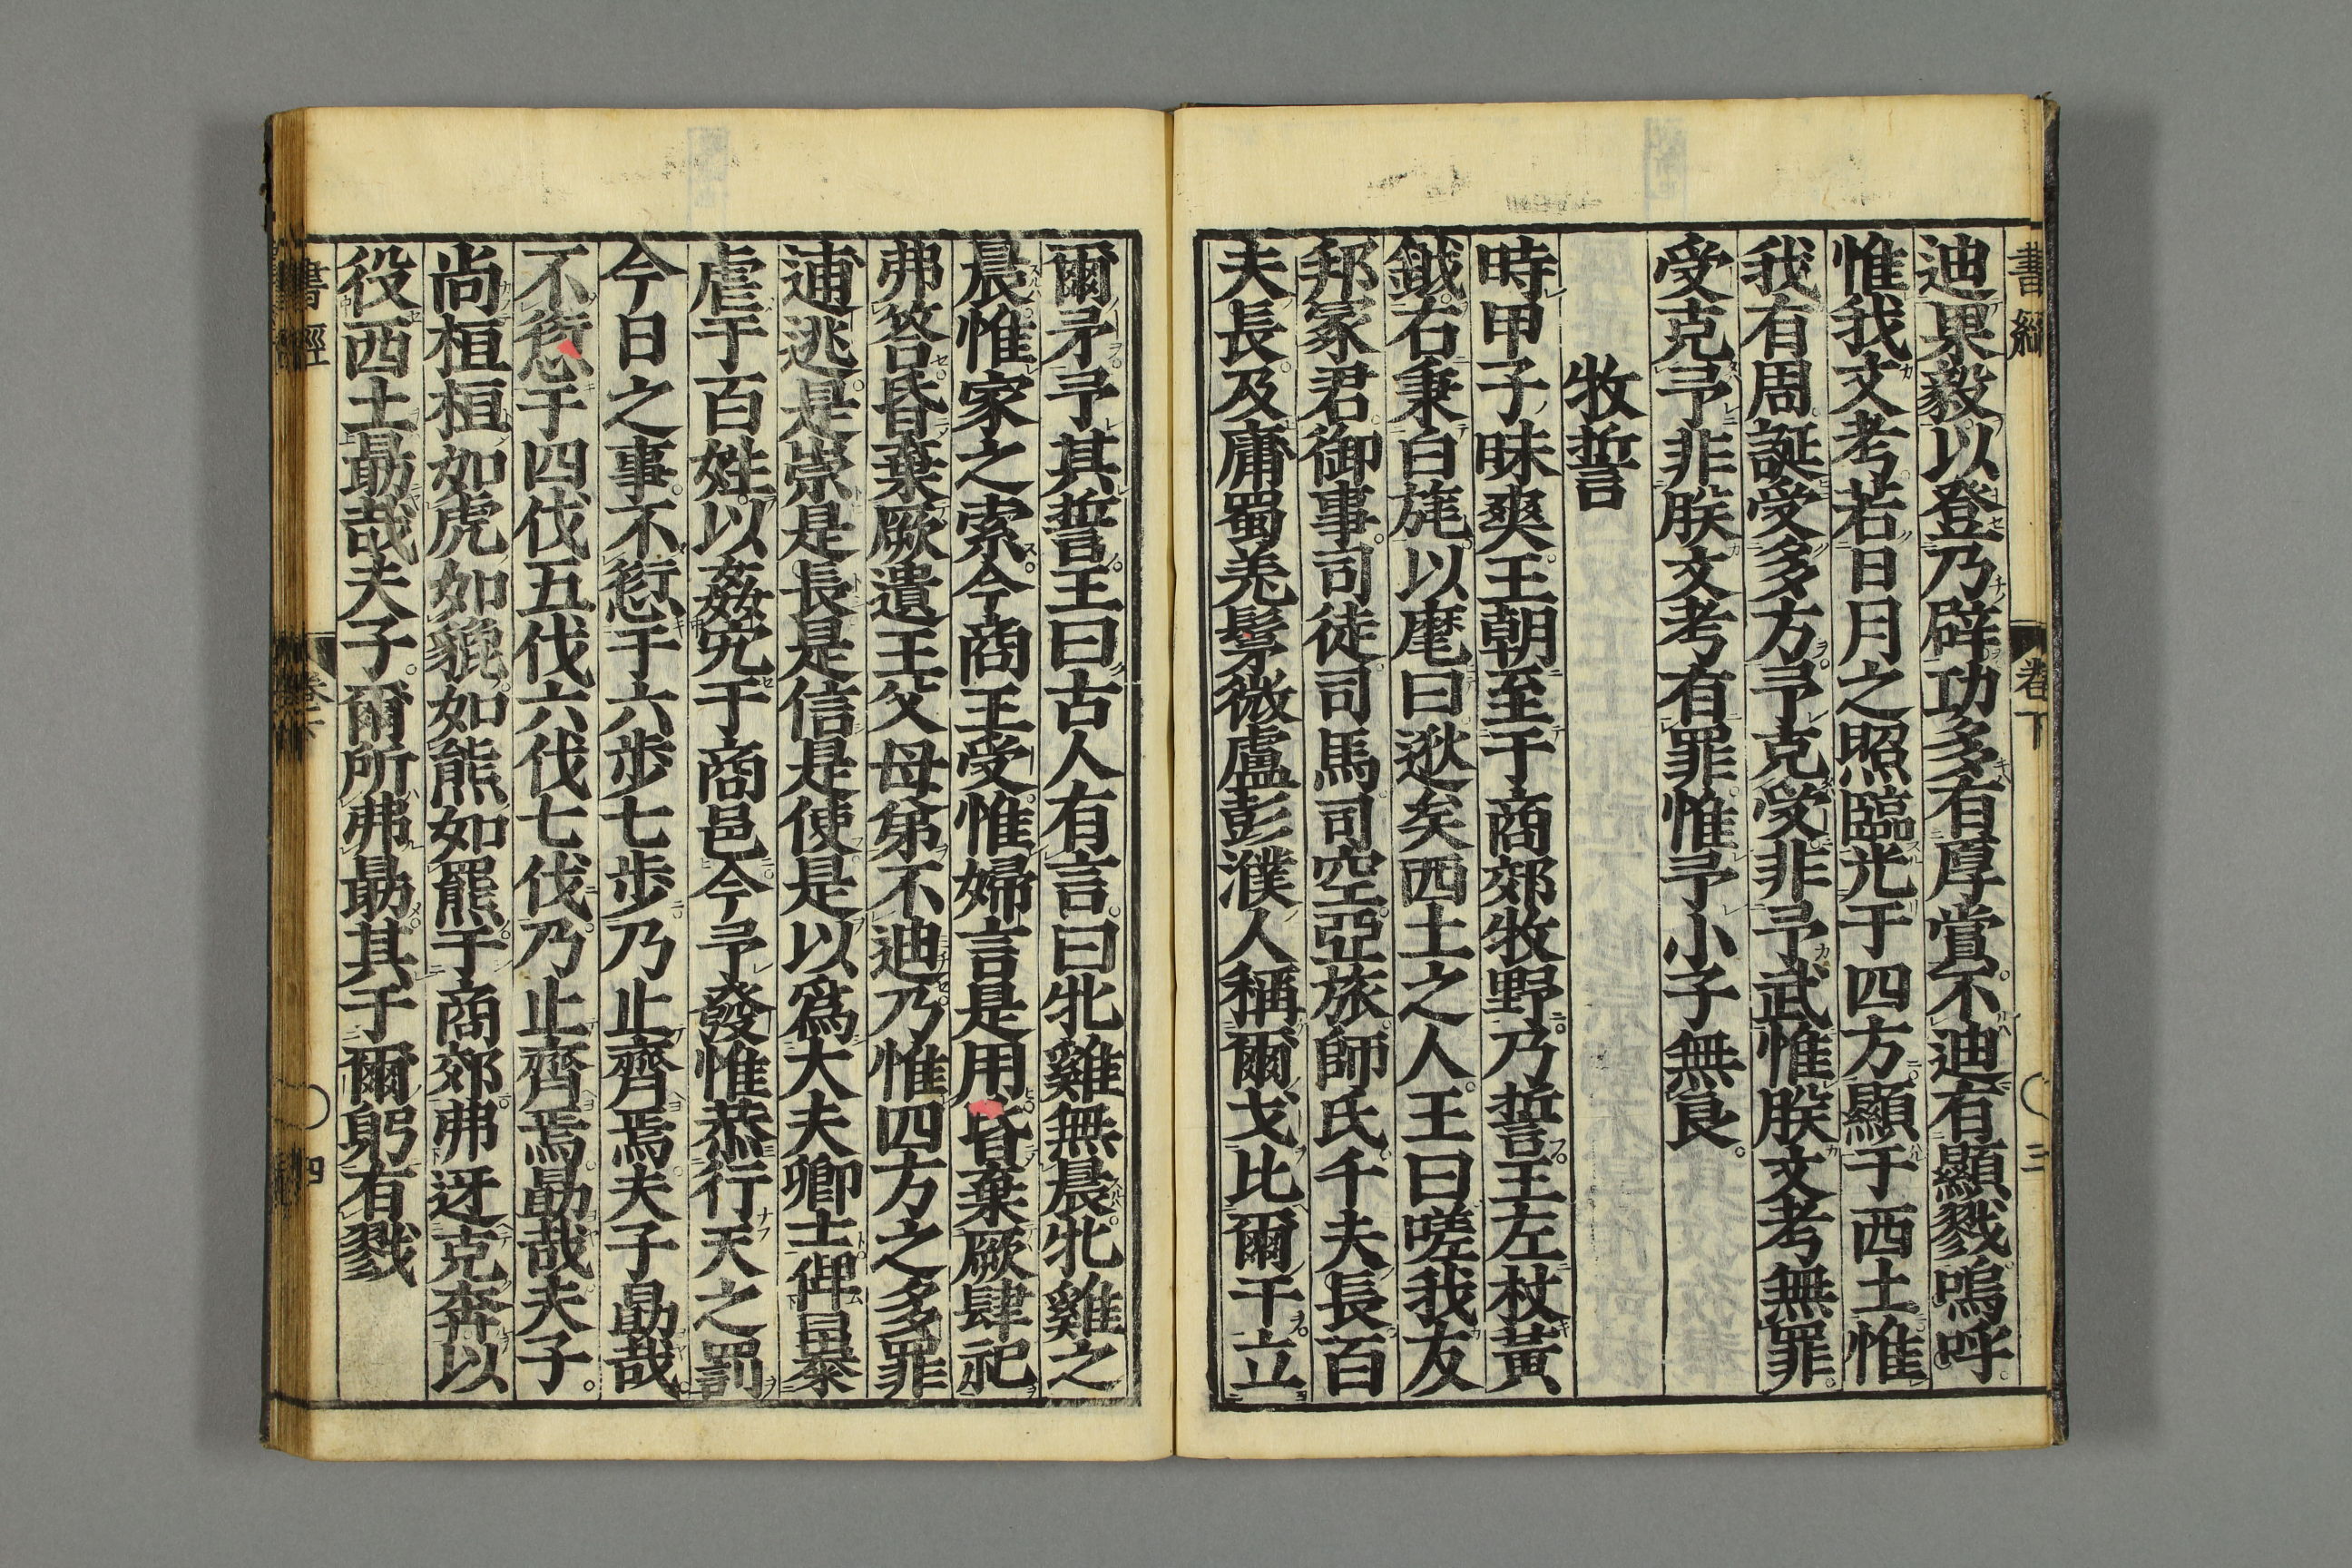 書經 卷下 三
迪果毅以登乃辟功多有厚賞不迪有顯戮嗚呼
惟我文考若日月之照臨光于四方顯于西土惟
我有周誕受多方予克受非予武惟朕文考無罪
受克予非朕文考有罪惟予小子無良
牧誓
時甲子昧爽王朝至于商郊牧野乃誓王左杖黃
鉞右秉白旄以麾曰逖矣西土之人王曰嗟我友
邦冢君御事司徒司馬司空亞旅師氏千夫長百
夫長及庸蜀羌髳微盧彭濮人稱爾戈比爾干立
爾矛予其誓王曰古人有言曰牝雞無晨牝雞之
晨惟家之索今商王受惟婦言是用昏棄厥肆祀
弗答昏棄厥遺王父母弟不迪乃惟四方之多罪
逋逃是崇是長是信是使是以爲大夫卿士俾暴
虐于百姓以姦宄于商邑今予發惟恭行天之罰
今日之事不愆于六步七步乃止齊焉夫子勗哉
不愆于四伐五伐六伐七伐乃止齊焉勗哉夫子
尚桓桓如虎如貔如熊如羆于商郊弗迓克奔以
役西土勗哉夫子爾所弗勗其于爾躬有戮
書經 卷下 四